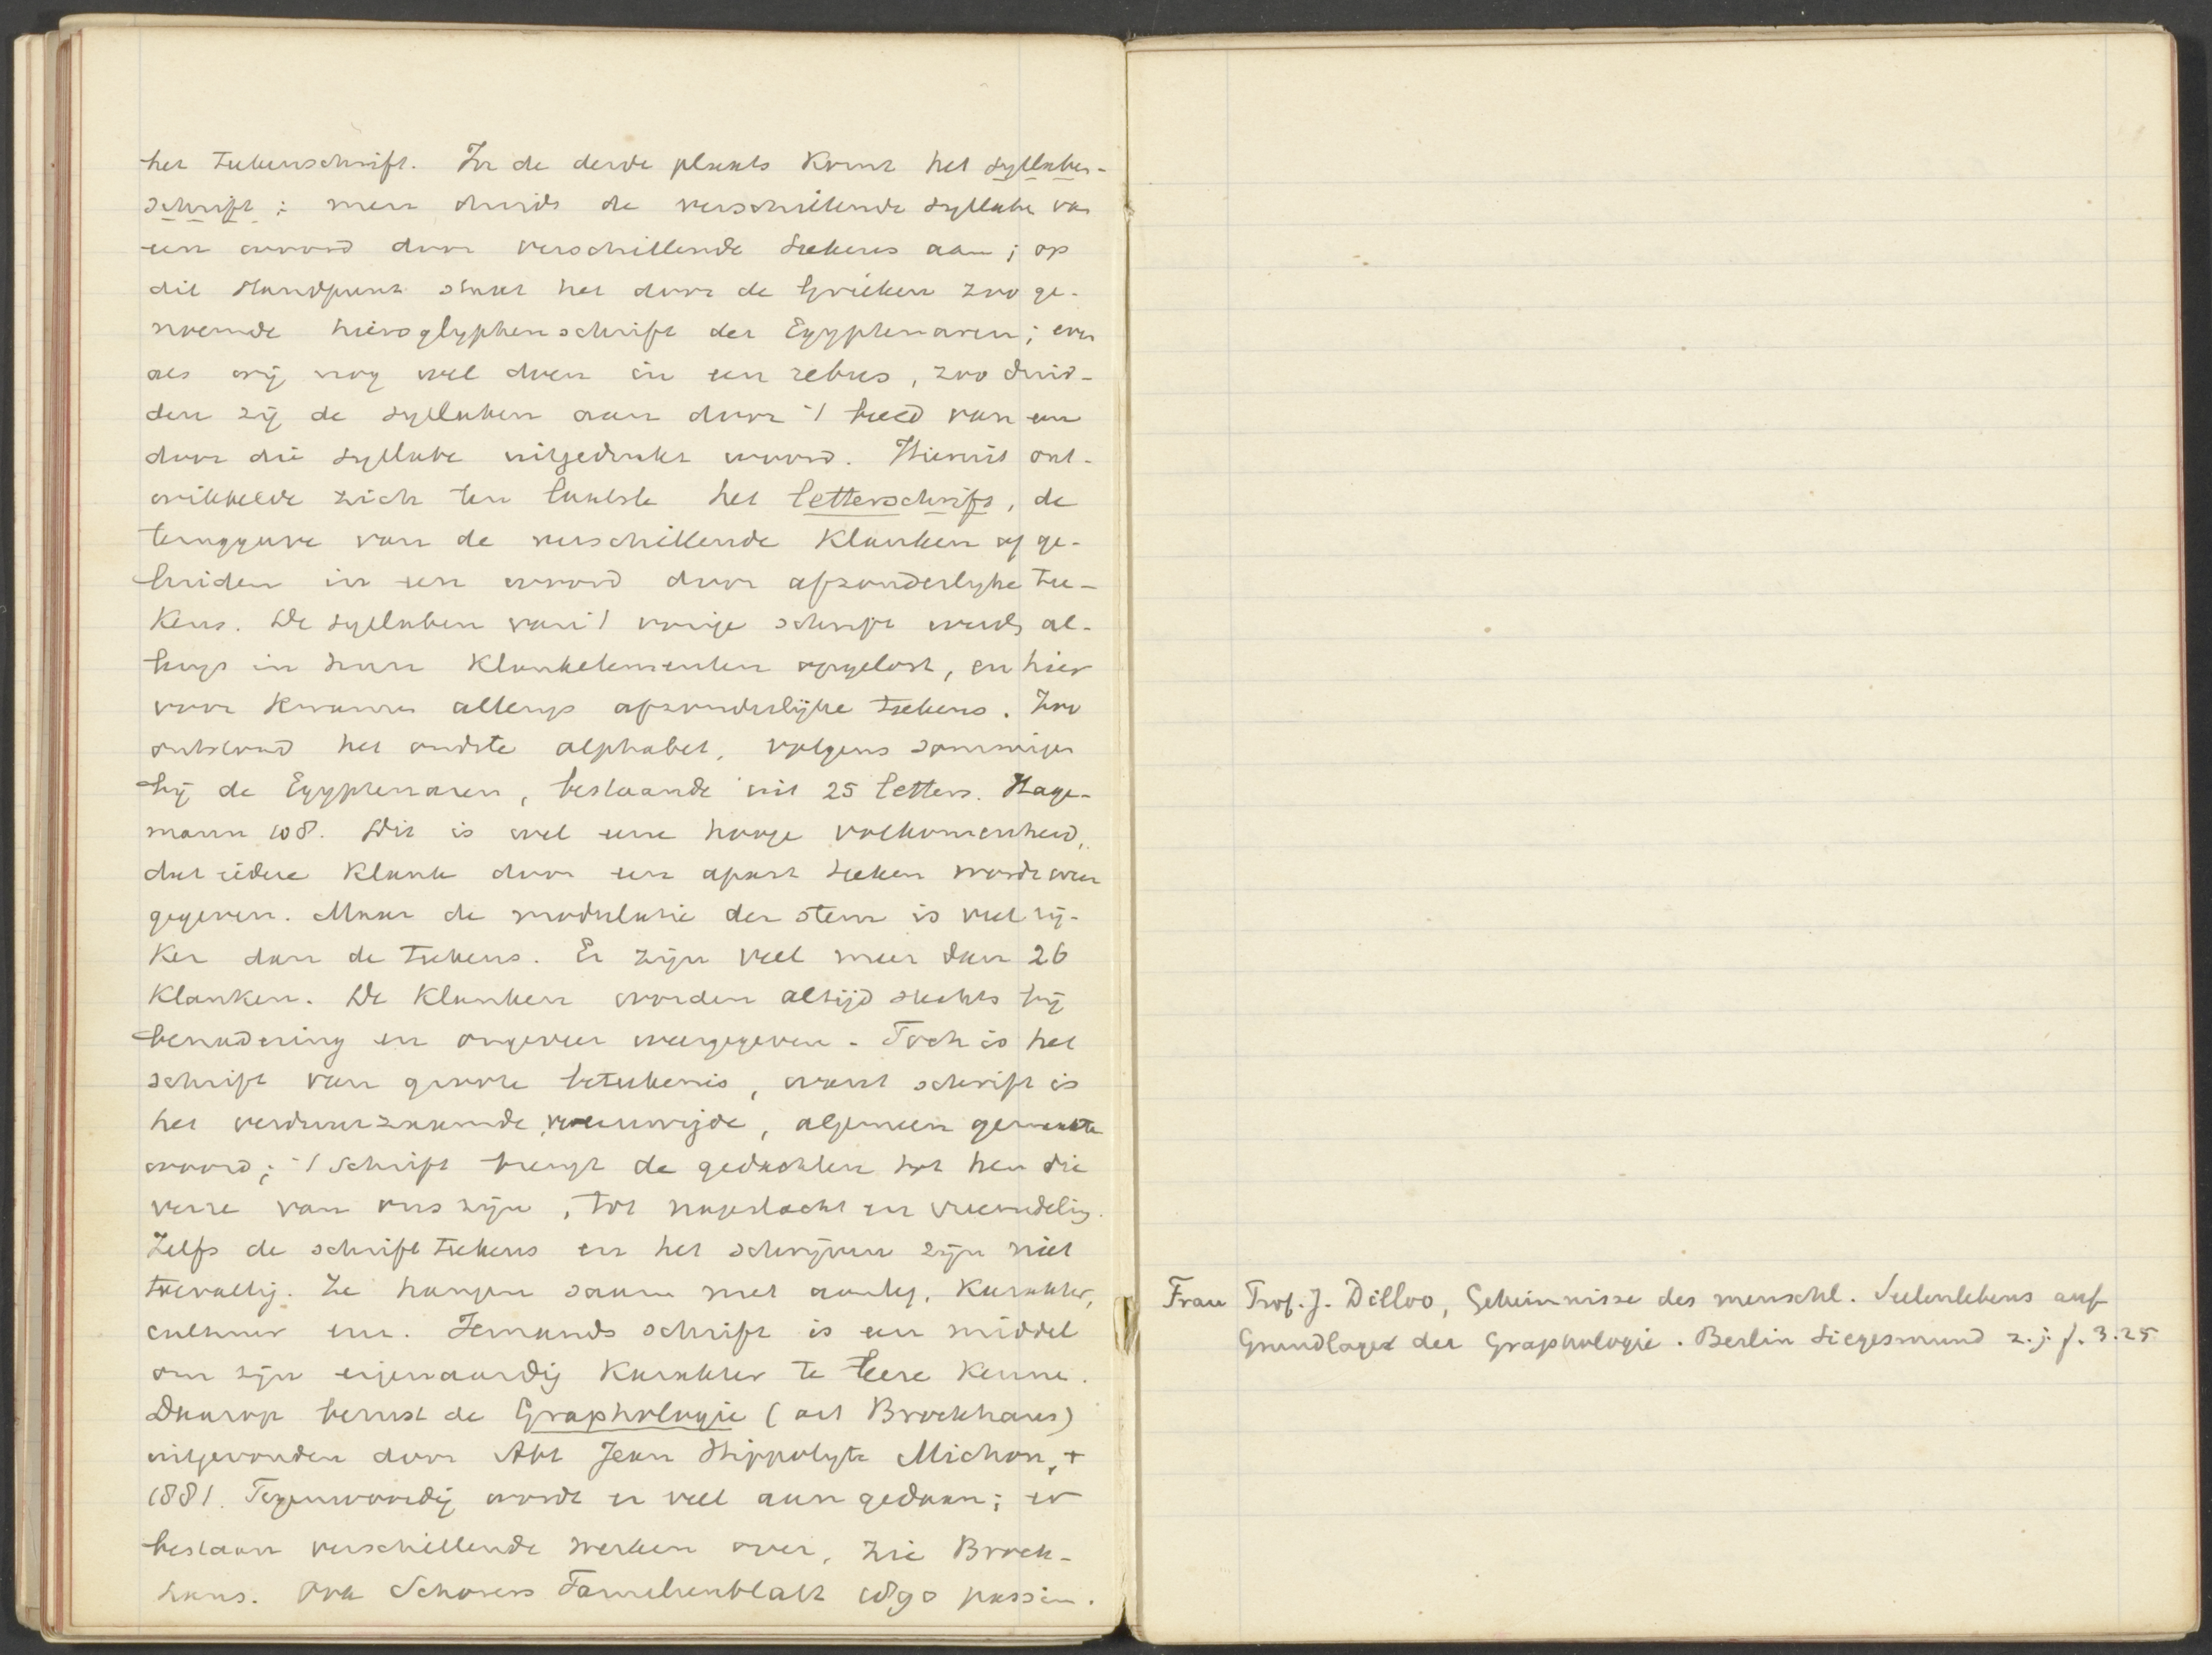 het teekenschrift. In de derde plaats komt het syllaben-
schrift; men duidt de verschillende syllabe van
een woord door verschillende teekens aan; op
dit standpunt staat het door de Grieken zoo ge-
noemde hieroglyphenschrift der Egyptenaren; even
als wij nog wel doen in een rebus, zoo duid-
den zij de syllaben aan door 't beeld van een
door die syllabe uitgedrukt woord. Hieruit ont-
wikkelde zich ten laatste het letterschrift, de
teruggave van de verschillende klanken of ge-
luiden in een woord door afzonderlyke tee-
kens. De syllaben van 't vorige schrift werd al-
lengs in hun klankelementen opgelost, en hier
voor kwamen allengs afzonderlijke teekens. Zoo
ontstond het oudste alphabet, volgens sommigen
bij de Egyptenaren, bestaande uit 25 letters. Hage-
mann 108. Dit is wel eene hooge volkomenheid,
dat iedere klank door een apart teeken wordt weer
gegeven. Maar de modulatie der stem is veel rij-
ker dan de teekens. Er zijn veel meer dan 26
klanken. De klanken worden altijd slechts bij
benadering en ongeveer weergegeven. Toch is het
schrift van groote beteekenis, want schrift is
het verduurzaamde, vereeuwigde, algemeen gemaakte
woord; 't schrift brengt de gedachten tot hen die
verre van ons zijn, tot nageslacht en vreemdeling.
Zelfs de schriftteekens en het schrijven zijn niet
toevallig. Ze hangen saam met aanleg, karakter,
cultuur enz. Iemands schrift is een middel
om zijn eigenaardig karakter te leere kenne.
Daarop berust de Graphologie (art Brockhaus)
uitgevonden door Abt Jean Hippolyte Michon, †
1881. Tegenwoordig wordt er veel aan gedaan; er
bestaan verschillende werken over, zie Brock-
haus. Ook Schorers Familienblatt 1890 passim.
Frau Prof. J. Dilloo, Geheimnisse des menschl. Seelenlebens auf
Grundlage der Graphologie. Berlin Siegesmund z. j. f. 3.25